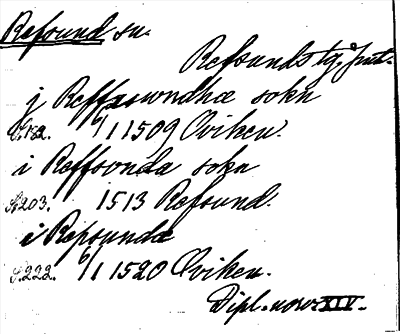 Refsund sn.
Refsunds tg, Jmt.
j Reffsswndhæ sokn
S.182. 6/1 1509 Oviken.
i Reffsonda sokn
S.203. 1513 Refsund.
i Repsundæ
S.222. 6/1 1520 Oviken.
Dipl. norv. XIV.